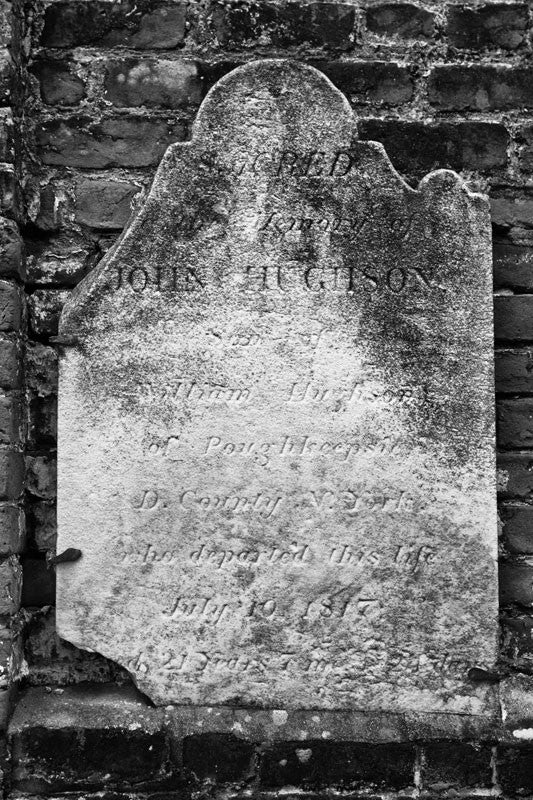 SACRED
Memory of
JOHN HUGHSON,
Son of
William Hughson
of Poughkeepsie
D. County N. York
who departed this life
July 19, 1817
21 Years 7 m.